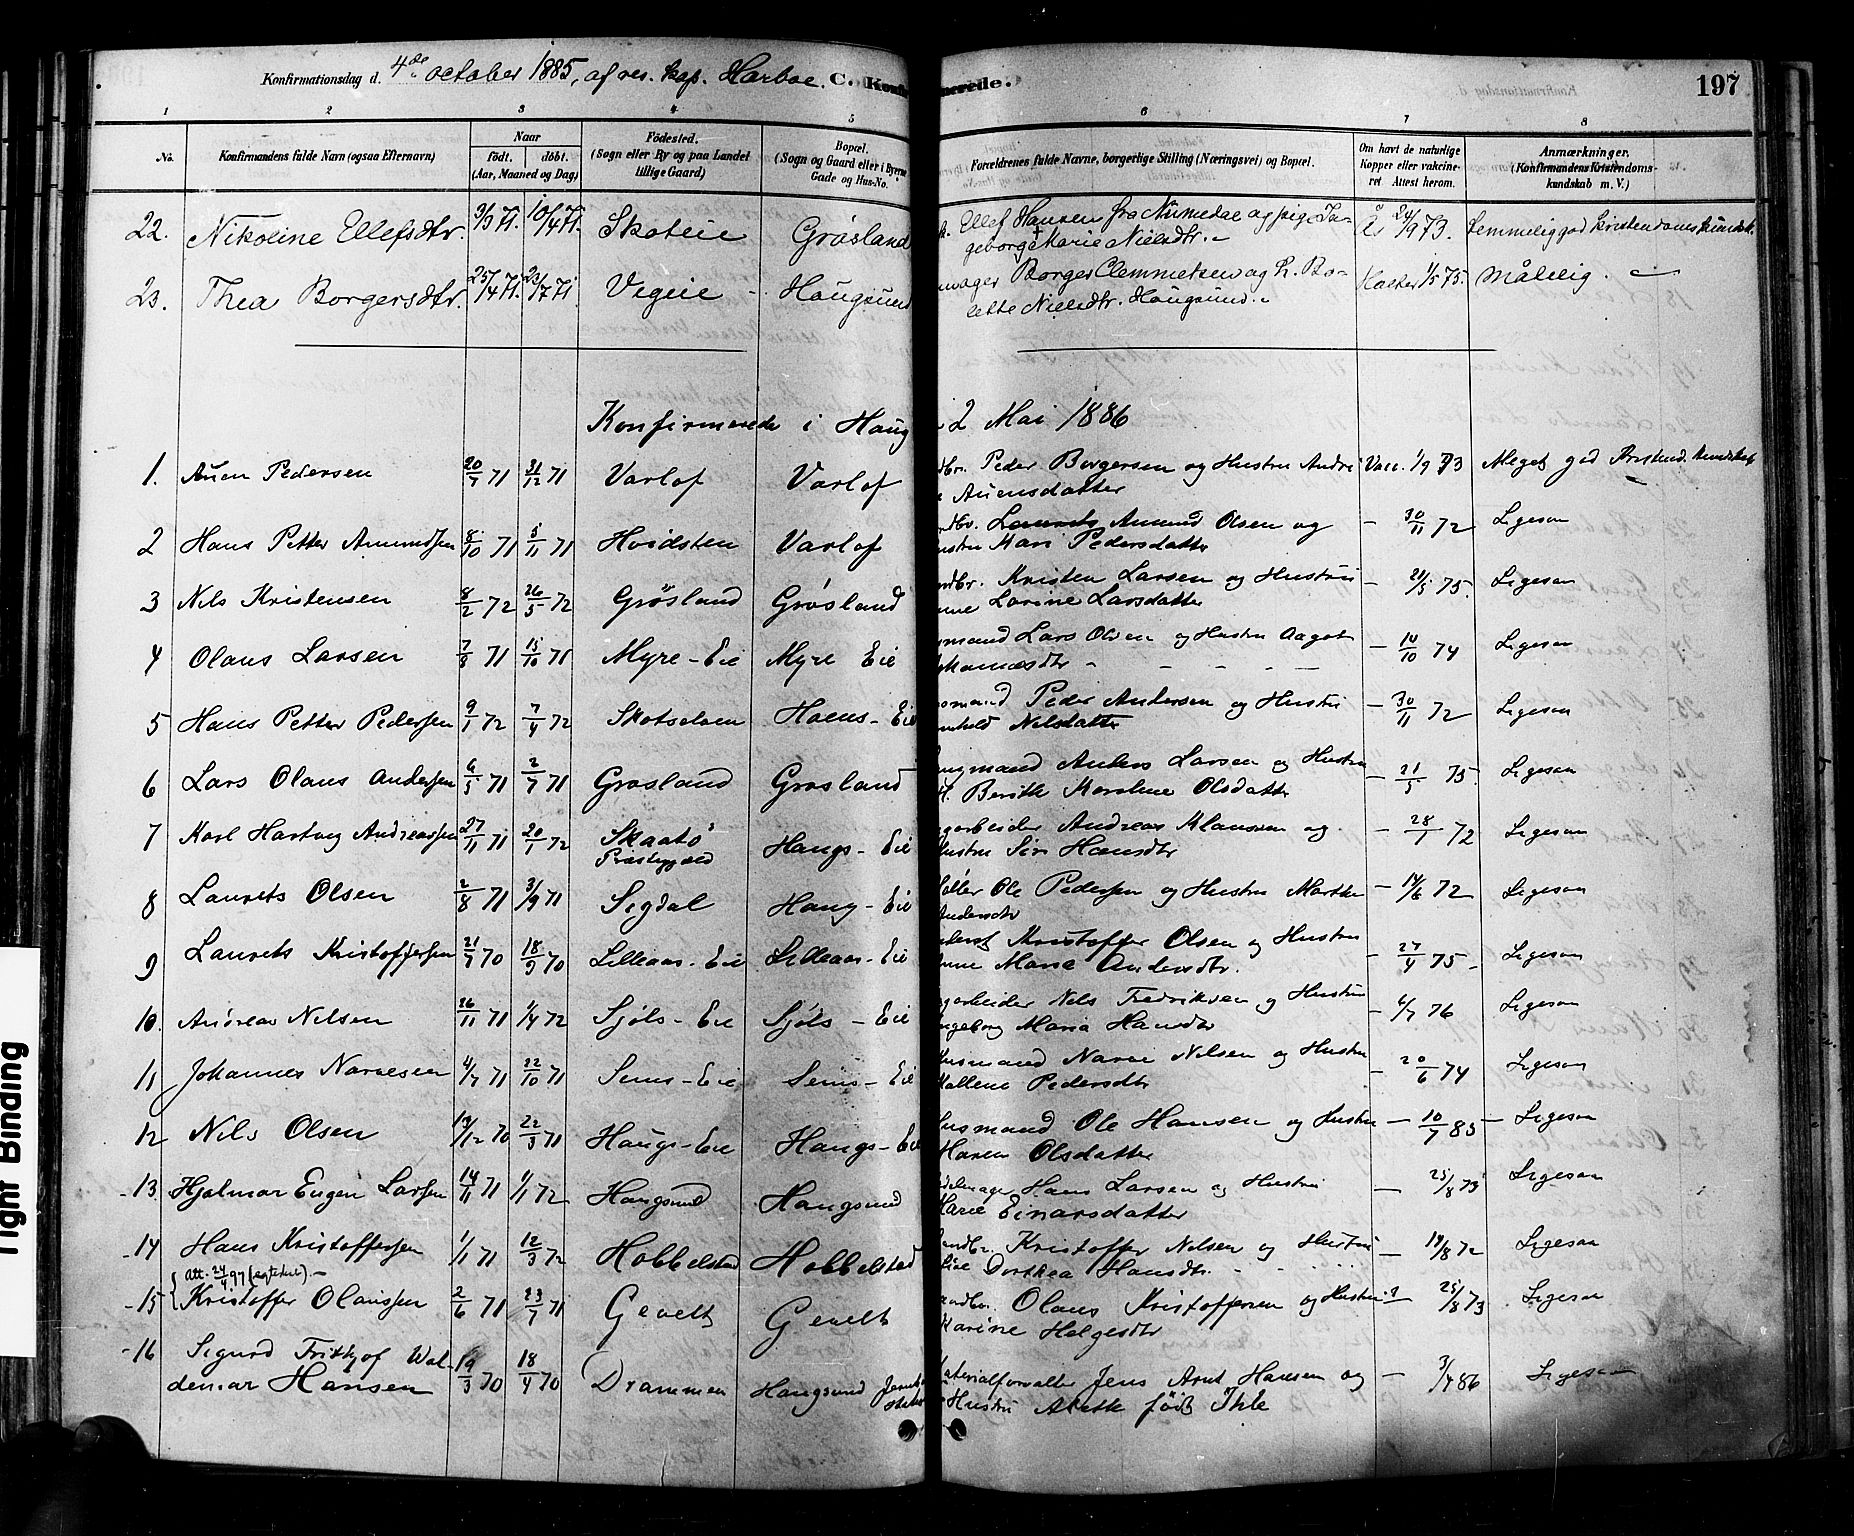 Konfirmationsdag d. 4de october 1885, af res. kap. Harboe. C. Konfirmerede. 197
1 2 3 4 5 6 7 8
No. Konfirmandens fulde Navn (ogsaa Efternavn) Naar født. døbt. (Aar, Maaned og Dag) Fødested. (Sogn eller By og paa Landet tillige Gaard) Bopæl. (Sogn og Gaard eller i Byerne Gade og Hus-No. Forældrenes fulde Navne, borgerlige Stilling (Næringsvei) og Bopæl. Om havt de naturlige Kopper eller vakcineret Attest herom. Anmærkninger. (Konfirmandens Kristendomskundskab m. V.)
22. Nikoline Ellefsdtr. 9/3 71. 10/4 71. Skoteie Grøsland Ellef Hansen fra Numedal og pige In-
geborg Marie Nielsdtr. 24/9 73. Temmelig god kristendomskundsk.
23. Thea Borgersdtr. 25/4 71. 23/7 71. Vegeie Hougsund Borger Clemmetsen og h. Bo-
lette Nielsdtr. Hougsund. 1/5 75. Målelig.
Konfirmerede i Haug 2 Mai 1886
1. Auen Pedersen 20/7 71 31/12 71 Varlof Varlof Peder Borgersen og Hustru Andri
Auensdatter Vacc. 1/9 73 Meget god Kristend. kundskab
2 Hans Petter Amundsen 8/10 71 5/11 71 Hvidsten Varlof Laurets Amund Olsen og
Mari Pedersdatter - 30/11 72 Ligesaa
3 Nils Kristensen 8/2 72 26/5 72 Grøsland Grøsland Kristen Larsen og Hustru
Lorine Larsdatter - 21/5 75. Ligesaa
4 Olaus Larsen 7/8 71 15/10 71 Myre-Eie Myre Eie Lars Olsen og Hustru Aagot
- 10/10 74 Ligesaa
5 Hans Petter Pedersen 9/1 72 7/4 72 Skotselven Hoens-Eie Peder Andersen og Hustru
Nilsdatter - 30/11 72 Ligesaa
6 Lars Olaus Andersen 6/5 71 2/7 71 Grosland Grosland Anders Larsen og Hustru
Berithe Karoline Olsdatter - 21/5 75. Ligesaa
7 Karl Hartvig Andreassen 27/11 71 20/1 72 Skaatø Præstegjæld Haugs-Eie Andreas Klausen og
Hustru Siri Hansdtr - 28/1 72 Ligesaa
8 Laurets Olsen 2/8 71 3/9 71 Sigdal Haug-Eie Ole Pedersen og Hustru Marthe
Andersdtr - 14/6 72 Ligesaa
9 Laurets Kristoffersen 21/7 70 18/9 70 Lilleaas-Eie Lilleaas-Eie Kristoffer Olsen og Hustru
Maria Andersdtr. - 27/4 75 - Ligesaa
10. Andreas Nilsen 26/11 71 1/4 72 Sjøls-Eie Sjøls-Eie Nils Fredriksen og Hustru
Ingeborg Maria Hansdtr - 6/7 76 Ligesaa
11 Johannes Narvesen 4/7 71 22/10 71 Sems-Eie Sems-Eie Husmand Narve Nilsen og Hustru
Pedersdtr - 20/6 74 Ligesaa
12 Nils Olsen 19/12 70 22/3 71 Haugs-Eie Haugs-Eie Husmand Ole Hansen og Hustru
Maren Olsdatter - 10/7 85 - Ligesaa
13. Hjalmar Eugen Larsen 14/11 71 1/1 72 Haugsund Haugsund Hans Larsen og Hustru
Marie Einarsdatter - 25/8 73 Ligesaa
14 Hans Kristoffersen 1/1 71 12/3 72 Hobbelstad Hobbelstad Kristoffer Nilsen og Hustru
Dorthea Hansdtr. - 19/8 72 Ligesaa
Att. 24/4 97 (ægteskab).
15 Kristoffer Olaussen 2/6 71 23/7 71 Gevelt Gevelt Olaus Kristoffersen og Hustru
Karine Helgesdtr - 25/8 73 Ligesaa
16 Sigurd Frithjof Wal-
demar Hansen 19/3 70 18/4 70 Drammen Haugsund Materialforvalter Jens Arnt Hansen og
Hustru Alethe født Ihle - 3/4 86 Ligesaa
Tight Binding